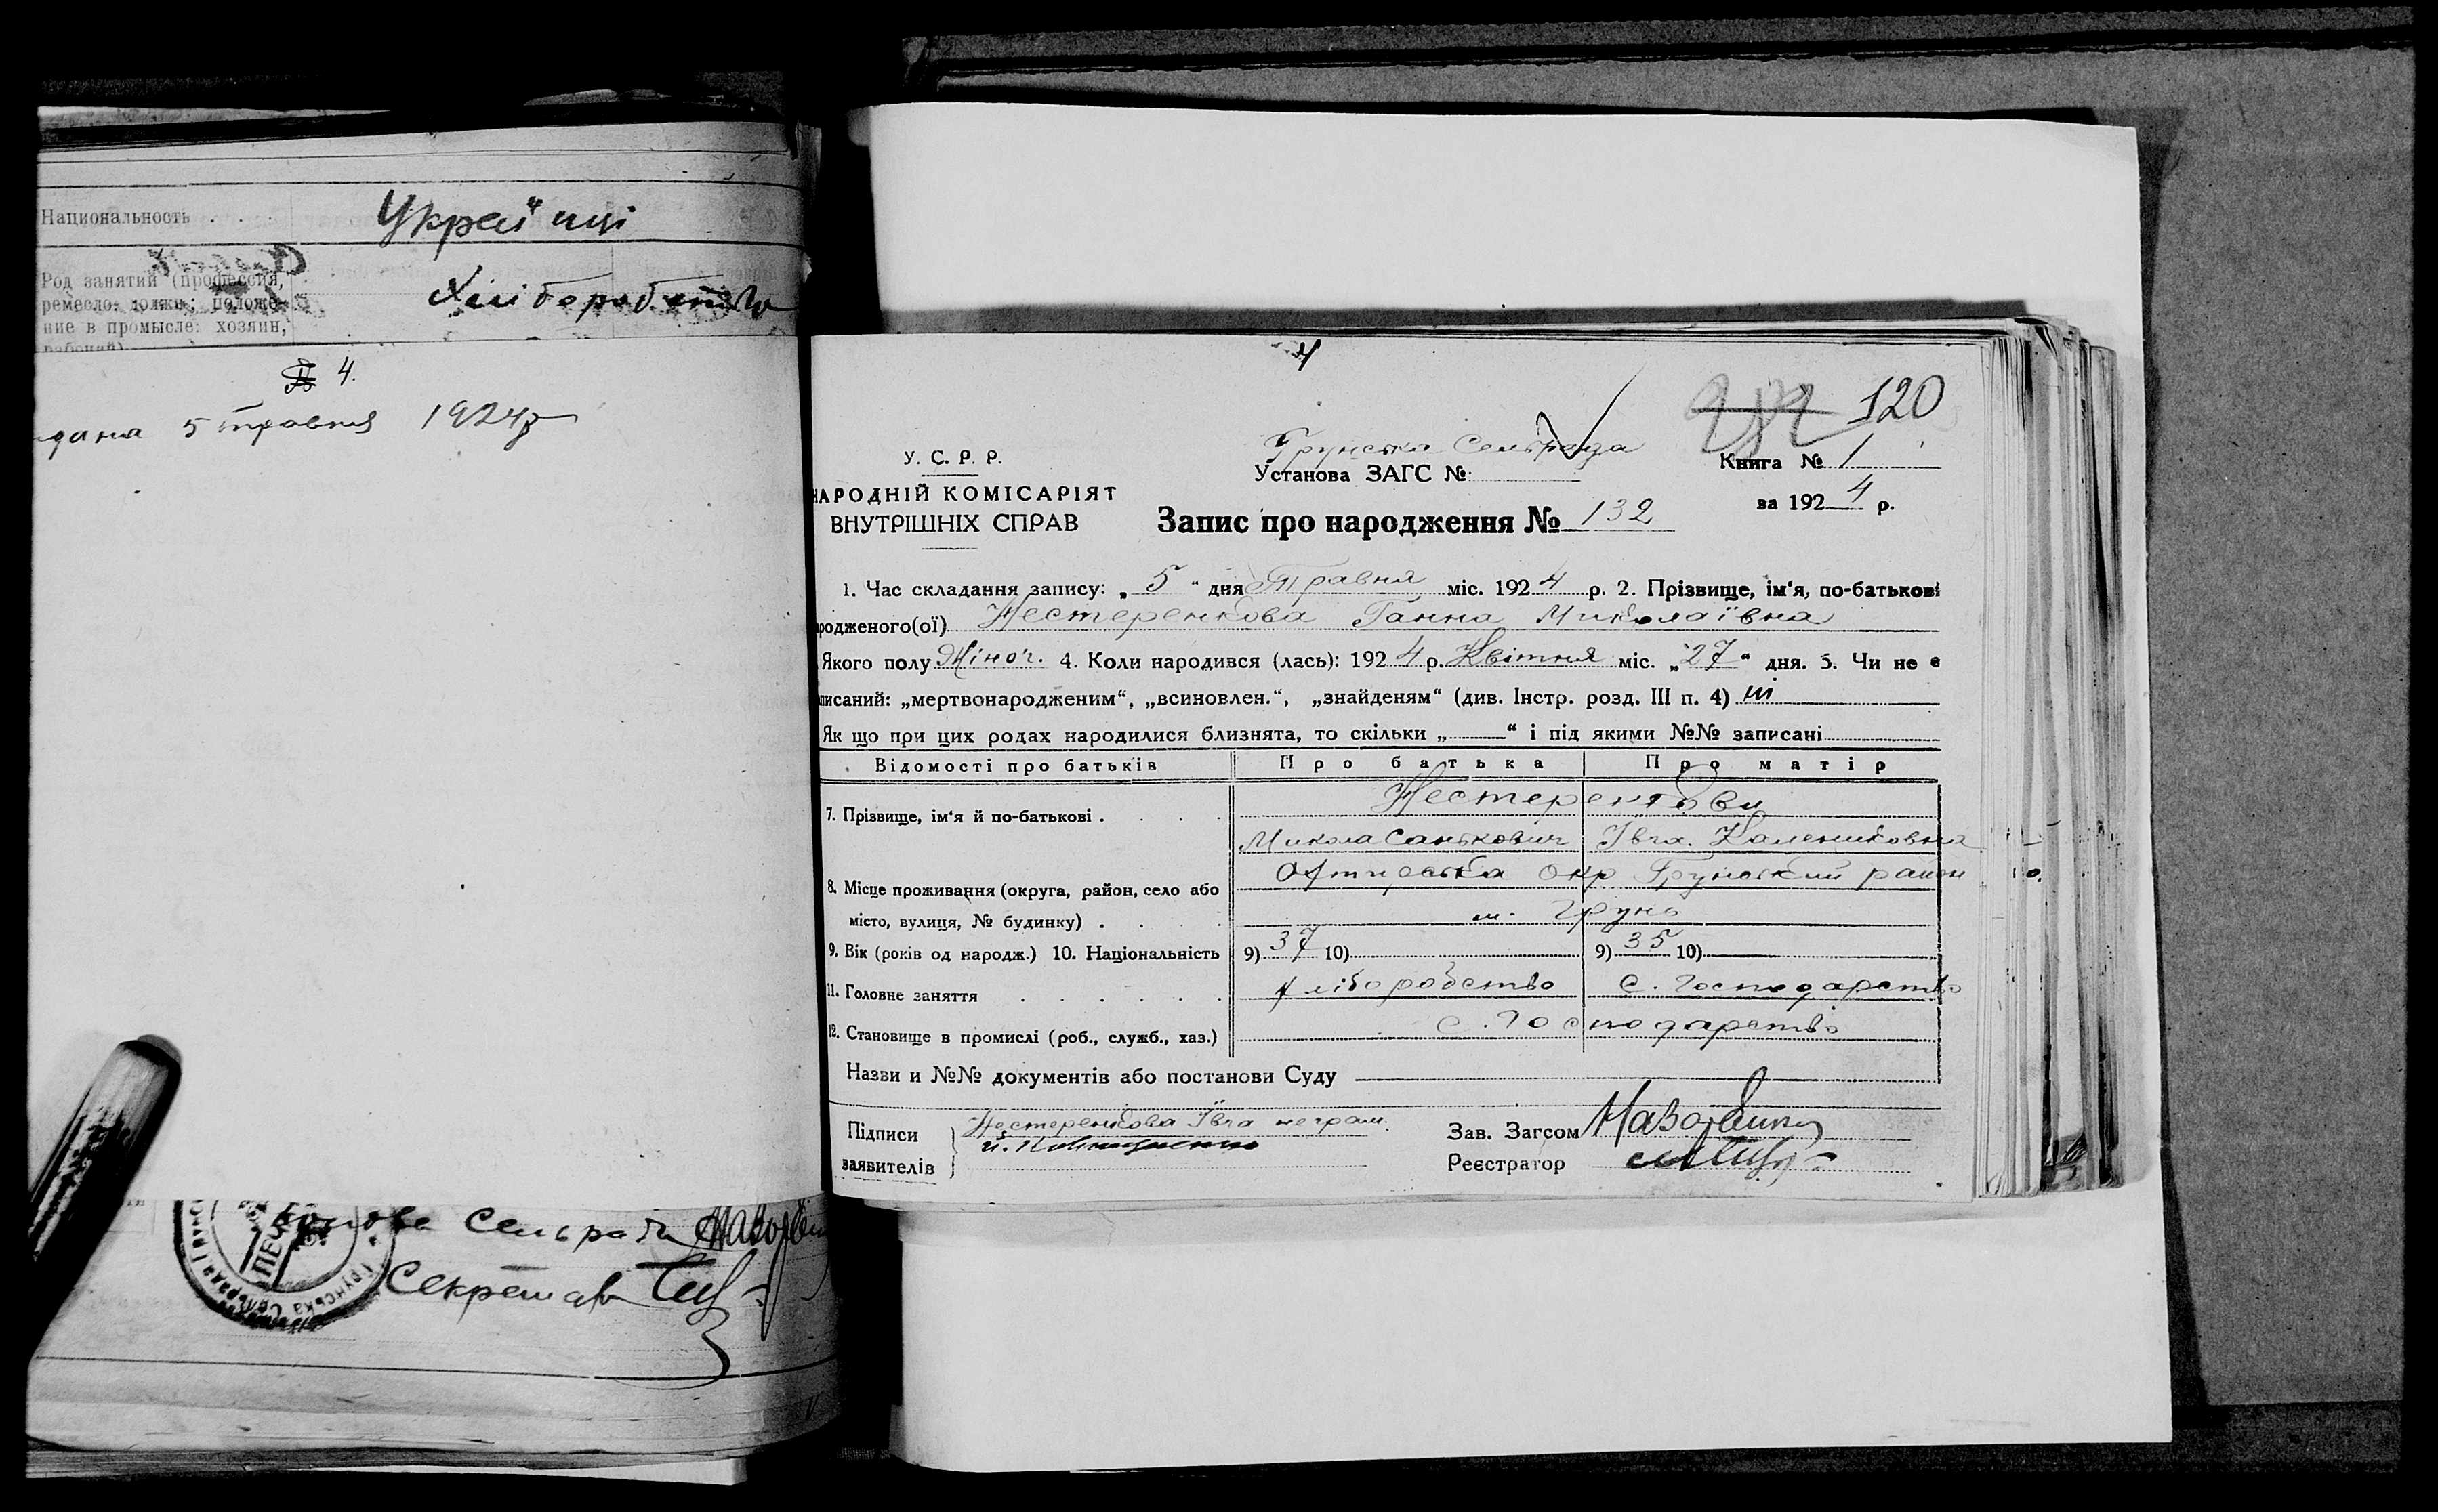 Национальность . . .
Українці
Род занятий (профессия,
ремесло: должн.; положе-
ние в промысле: хозяин,
рабочий)
Хліборобство
4.
дана 5 травня 1924 р
Голова Сельради
Секретар
4
120
У. С. Р. Р.
НАРОДНІЙ КОМІСАРІЯТ
ВНУТРІШНІХ СПРАВ
Грунська Сельрада
Установа ЗАГС №
Книга № 1
за 1924 р.
Запис про народження № 132
1. Час складання запису: „5“ дня Травня міс. 1924 р. 2. Прізвище, ім'я, по-батькові
родженого(ої) Нестеренкова Ганна Миколаївна
Якого полу Жіноч. 4. Коли народився (лась): 1924 р. Квітня міс. „27“ дня. 5. Чи не є
писаний: „мертвонародженим“, „всиновлен.“, „знайденям“ (див. Інстр. розд. III п. 4) ні
Як що при цих родах народилися близнята, то скільки „ “ і під якими №№ записані
Відомості про батьків Про батька Про матір
7. Прізвище, ім'я й по-батькові . . . . Нестеренкови
Микола Санькович Івга Калениковна
8. Місце проживання (округа, район, село або Охтирська окр Грунський район
місто, вулиця, № будинку) . . . . м. Грунь
9. Вік (років од народж.) 10. Національність 9) 37 10) 9) 35 10)
11. Головне заняття . . . . . . хліборобство с. господарство
12. Становище в промислі (роб., служб., хаз.) с. господарство
Назви и №№ документів або постанови Суду
Підписи
заявителів
Нестеренкова Івга неграм.
Зав. Загсом
Реєстратор